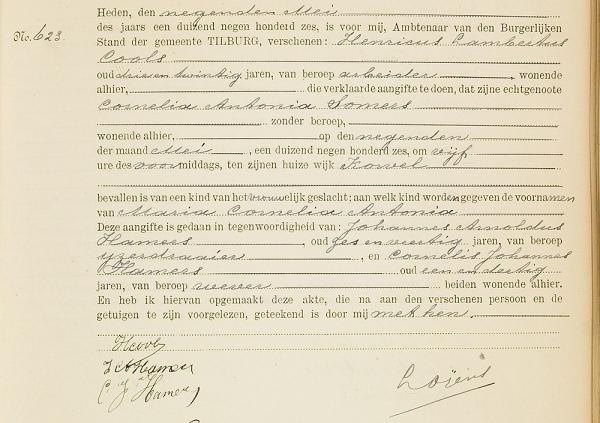 Heden, den negenden Mei
des jaars een duizend negen honderd zes, is voor mij, Ambtenaar van den Burgerlijken
No. 623.
Stand der gemeente TILBURG, verschenen: Henricus Lambertus
Cools
oud drie en twintig jaren, van beroep arbeider, wonende
alhier, die verklaarde aangifte te doen, dat zijne echtgenoote
Cornelia Antonia Somers
zonder beroep,
wonende alhier, op den negenden
der maand Mei, een duizend negen honderd zes, om vijf
ure des voormiddags, ten zijnen huize wijk Korvel
bevallen is van een kind van het vrouwelijk geslacht; aan welk kind worden gegeven de voornamen
van Maria Cornelia Antonia
Deze aangifte is gedaan in tegenwoordigheid van: Johannes Arnoldus
Hamers, oud zes en veertig jaren, van beroep
ijzerdraaier, en Cornelis Johannes
Hamers oud een en dertig
jaren, van beroep wever beiden wonende alhier.
En heb ik hiervan opgemaakt deze akte, die na aan den verschenen persoon en de
getuigen te zijn voorgelezen, geteekend is door mij met hen.
HCools
J A Hamers
C. J. Hamers